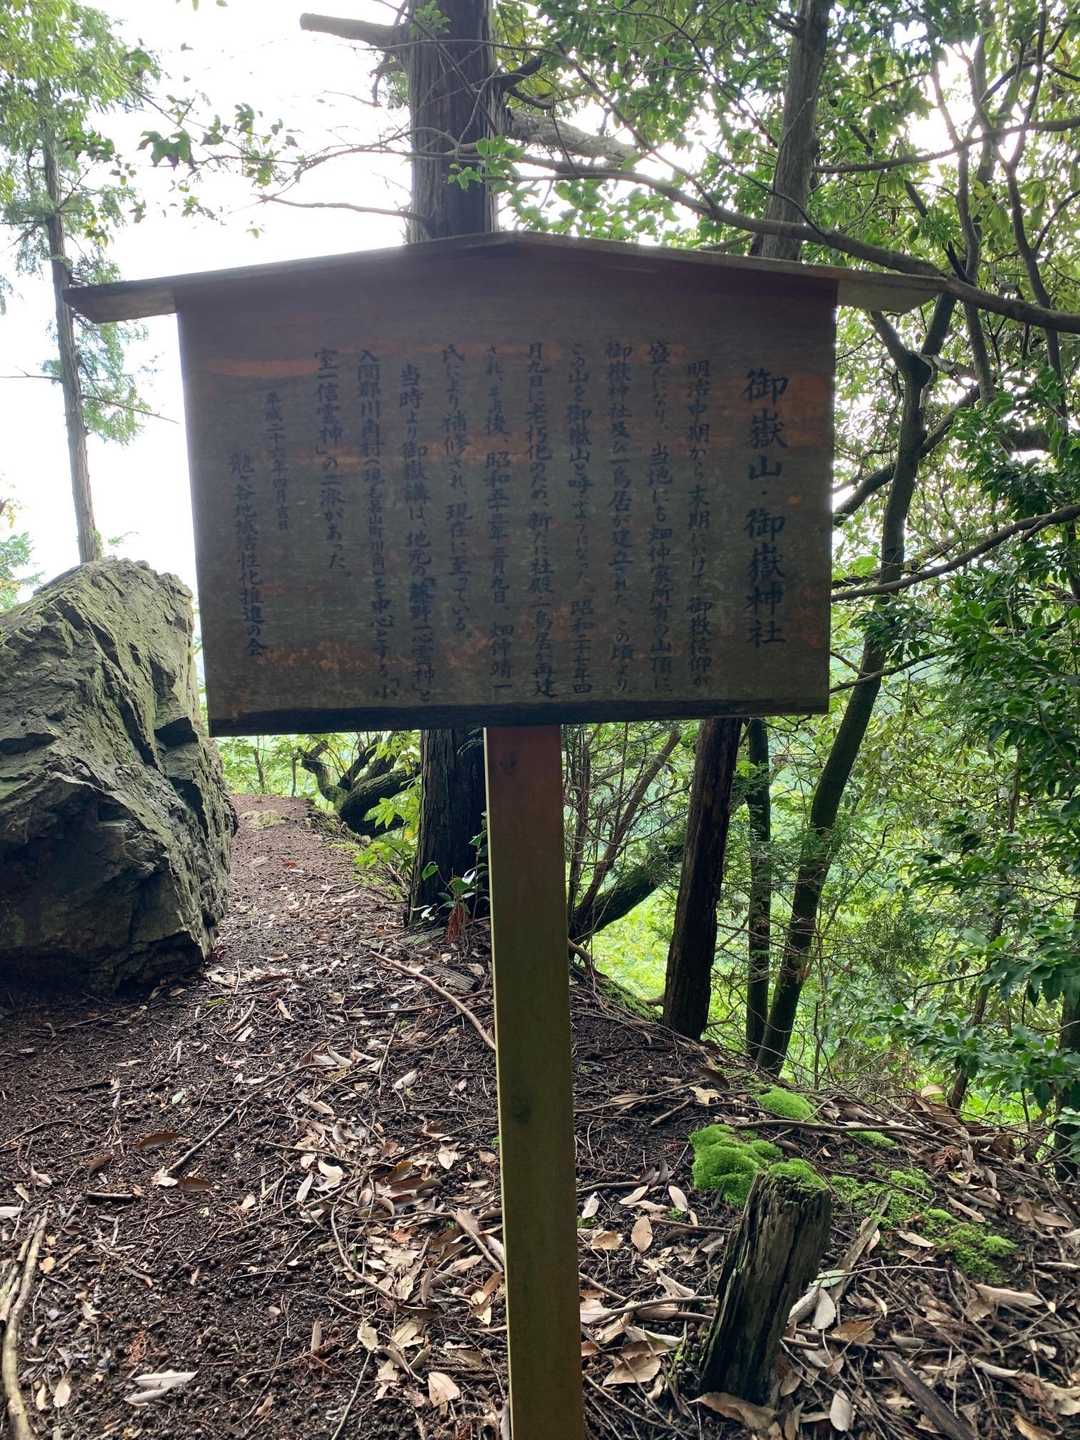 御嶽山・御嶽神社
明治中期から末期にかけて、御嶽信仰が
盛んになり、当地にも畑仲家所有の山頂に
御嶽神社及び一鳥居が建立された。この頃より
この山を御嶽山と呼ぶようになった。昭和二十七年四
月九日に老朽化のため、新たに社殿、鳥居が再建
され、その後、昭和五十 年三月九日 畑仲靖一
氏により補修され、現在に至っている。
当時より御嶽講は、地元の 野一心霊神」と
入間郡川角村(現毛呂山町川角)を中心とする「小
室一信霊神」の二派があった。
平成二十六年四月吉日
龍ヶ谷地域活性化推進の会